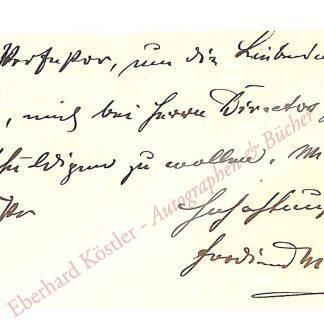 Professor, um die Liebens
, mich bei Herrn Director
schuldigen zu wollen. Mi
Hochachtung
Ferdinand M
Eberhard Köstler - Autographen & Bücher